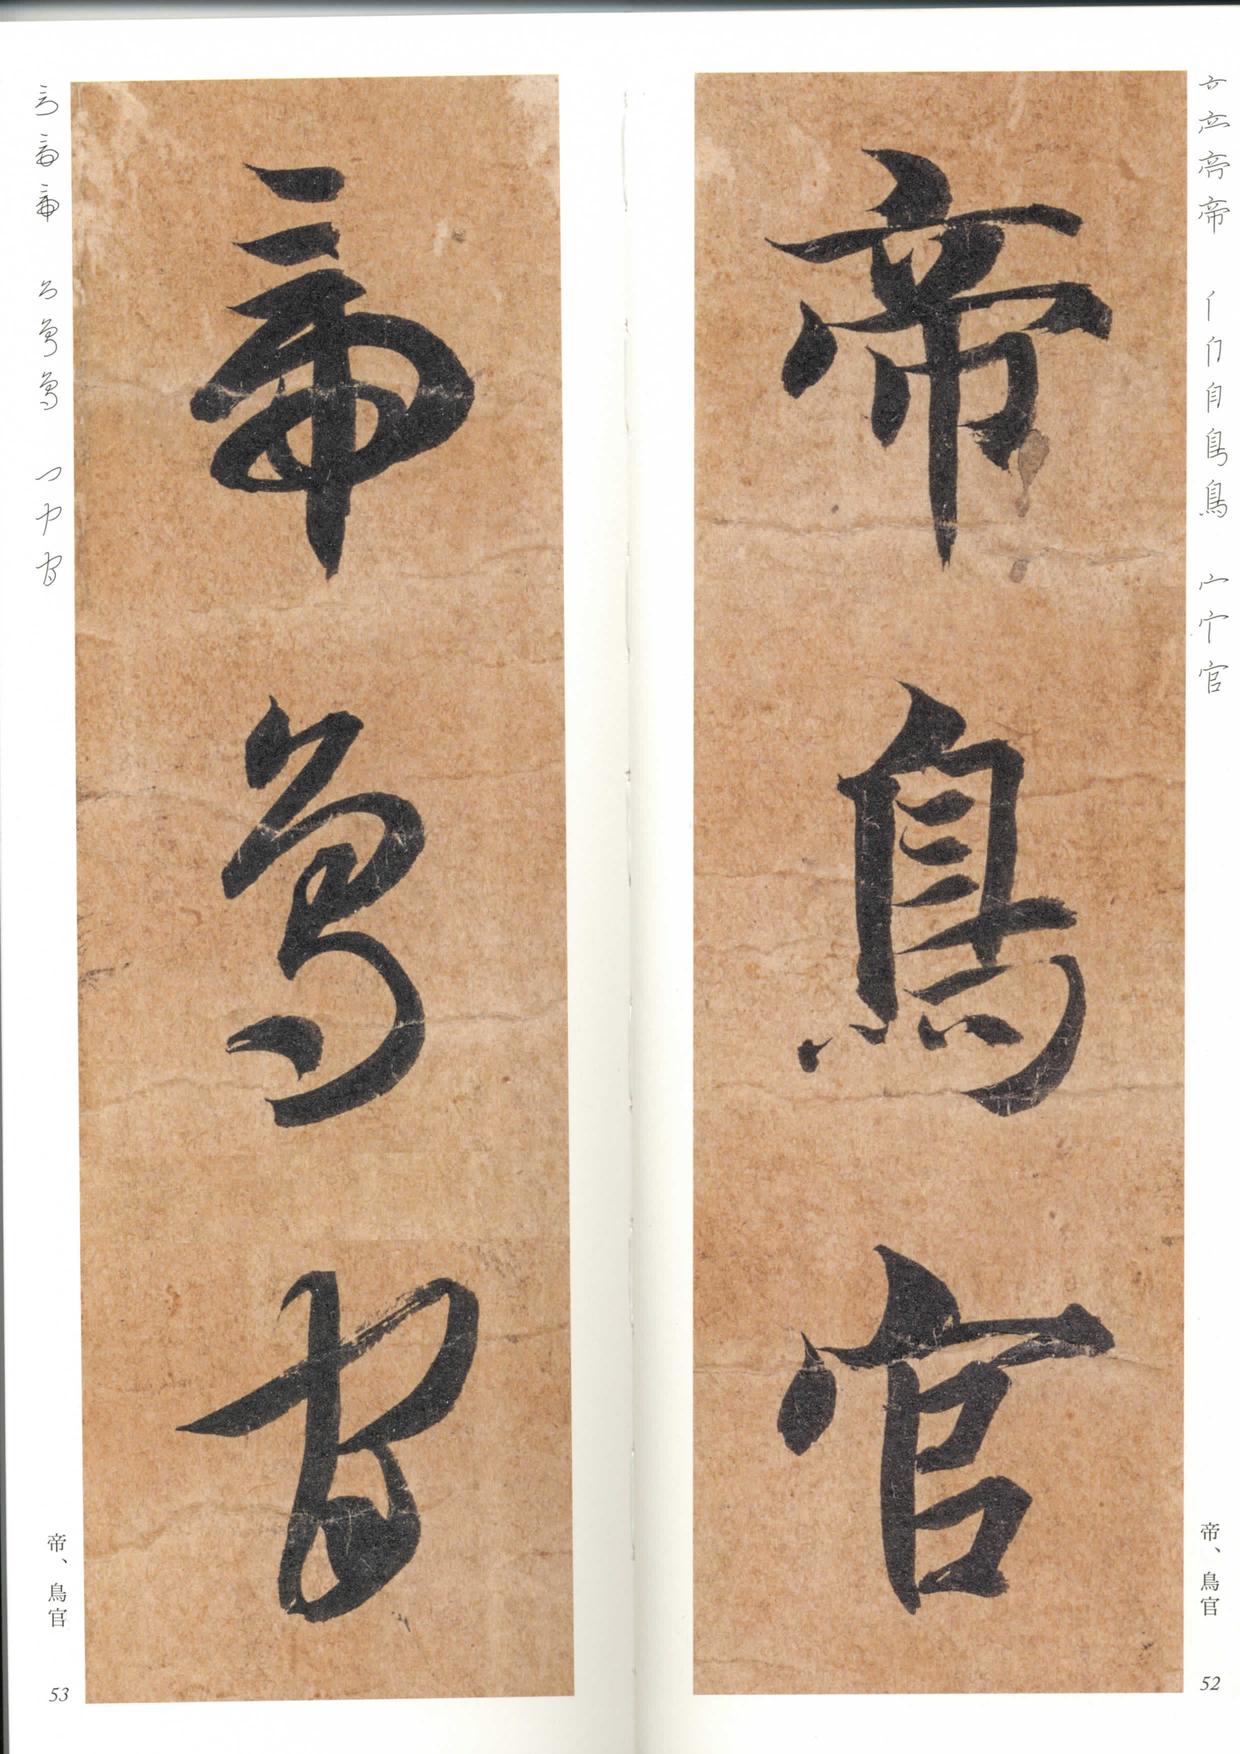 帝鳥官
帝、鳥官
52
帝鳥官
帝、鳥官
53